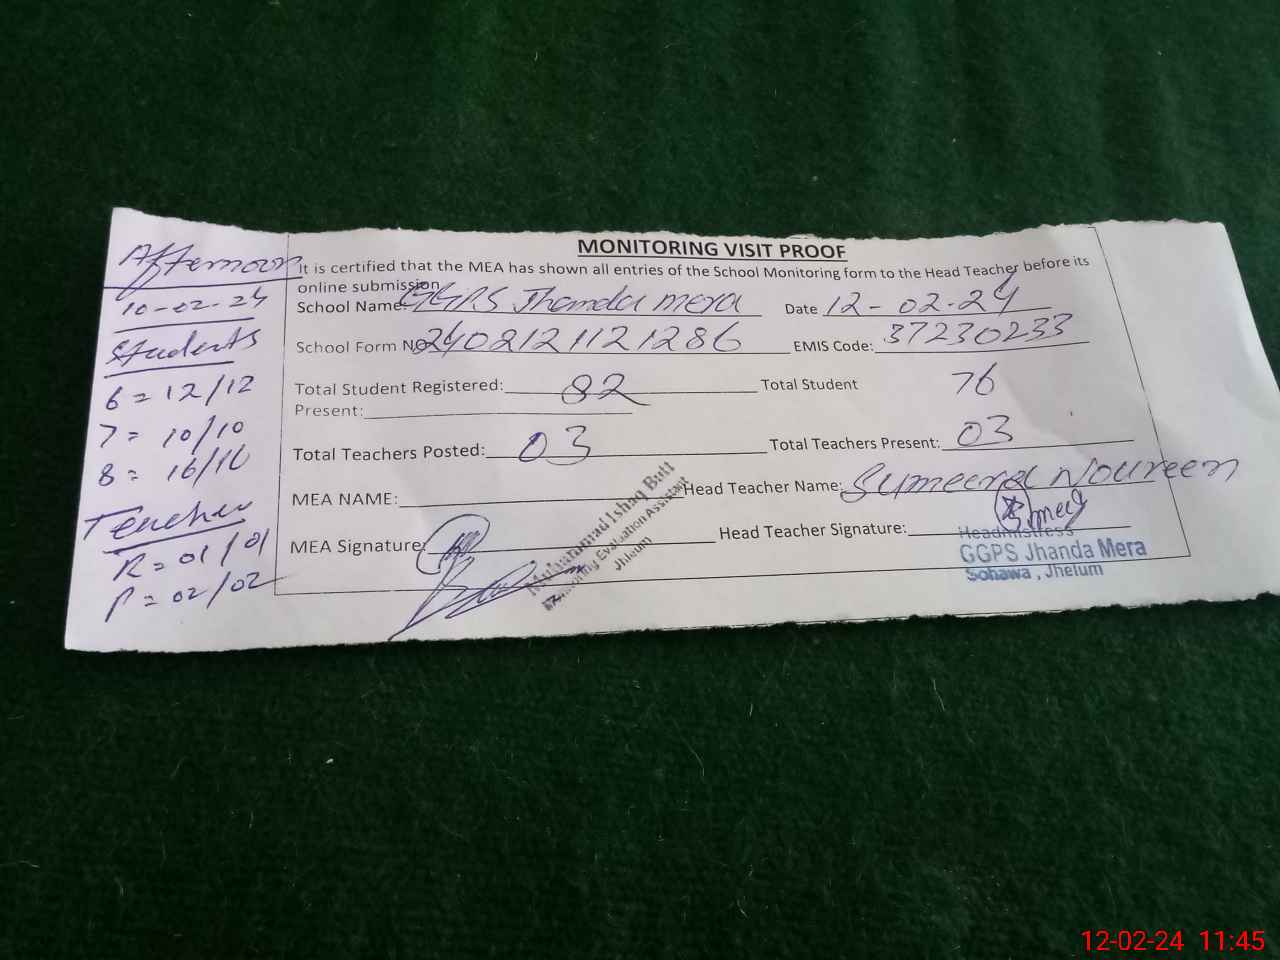 Afternoon
10-02-24
Students
6 = 12/12
7 = 10/10
8 = 16/16
Teacher
R = 01/01
P = 02/02
MONITORING VISIT PROOF
It is certified that the MEA has shown all entries of the School Monitoring form to the Head Teacher before its
online submission
School Name: GGPS Jhanda mera Date 12-02-24
School Form No 2402121121286 EMIS Code: 37230233
Total Student Registered: 82 Total Student 76
Present:
Total Teachers Posted: 03 Total Teachers Present: 03
MEA NAME: Head Teacher Name: Sumeera Noureen
MEA Signature: Head Teacher Signature:
Muhammad Ishaq Butt
Monitoring Evaluation Assistant
Jhleum
Headmistress
GGPS Jhanda Mera
Sohawa, Jhelum
12-02-24 11:45